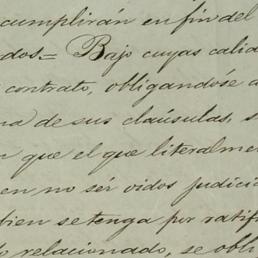 cumplirán en fin del
dos= Bajo cuyas calida
contrato, obligandose a
na de sus claúsulas, s
n que el que literalme
en no sér oidos judici
bien se tenga por ratifi
relacionado, se obli